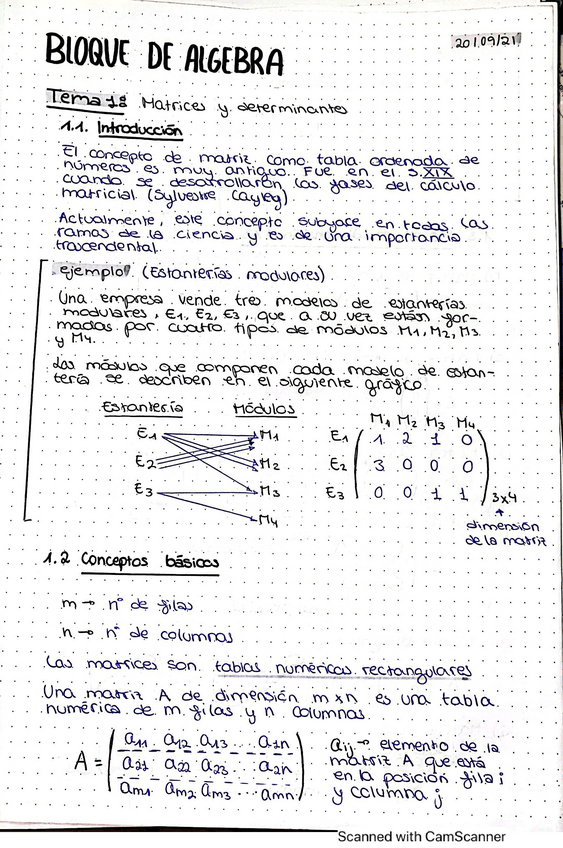 BLOQUE DE ALGEBRA
20/09/21
Tema 1: Matrices y determinantes
1.1. Introducción
El concepto de matriz como tabla ordenada de
números es muy antiguo. Fue en el s.XIX
cuando se desarrollaron las bases del cálculo
matricial (Sylvestre Cayley)
Actualmente, este concepto subyace en todas las
ramas de la ciencia y es de una importancia
trascendental.
ejemplo (Estanterías modulares)
Una empresa vende tres modelos de estanterías
modulares, E1, E2, E3, que a su vez están for-
madas por cuatro tipos de módulos M1, M2, M3
y M4.
Los módulos que componen cada modelo de estan-
tería se describen en el siguiente gráfico.
Estantería Módulos
E1 M1
E2 M2
E3 M3
M4
M1 M2 M3 M4
E1 1 2 1 0
E2 3 0 0 0
E3 0 0 1 1
3x4
dimensión
de la matriz.
1.2 Conceptos básicos
m → nº de filas
n → nº de columnas
Las matrices son tablas numéricas rectangulares
Una matriz A de dimensión mxn es una tabla
numérica de m filas y n columnas.
A = ( a11 a12 a13 ... a1n
a21 a22 a23 ... a2n
am1 am2 am3 ... amn )
aij → elemento de la
matriz A que está
en la posición fila i
y columna j
Scanned with CamScanner